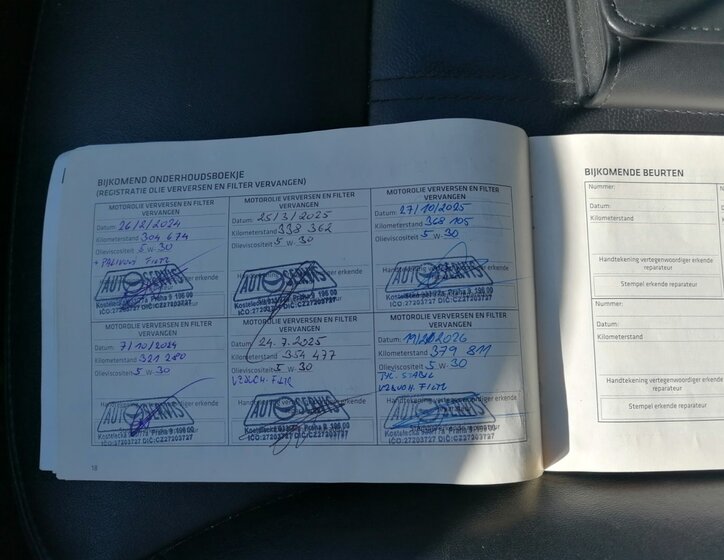 BIJKOMEND ONDERHOUDSBOEKJE
(REGISTRATIE OLIE VERVERSEN EN FILTER VERVANGEN)
MOTOROLIE VERVERSEN EN FILTER
VERVANGEN
Datum: 26/2/2024
Kilometerstand 304 674
Olieviscositeit 5 W 30
+ PALIVOVÝ FILTR
erkende
AUTOSERVIS
Praha 9, 196 00
IČO:27203727 DIČ:CZ27203727
MOTOROLIE VERVERSEN EN FILTER
VERVANGEN
Datum: 7/10/2024
Kilometerstand 321 280
Olieviscositeit 5 W 30
Handtekening erkende
AUTOSERVIS
Kostelecká Praha 9, 196 00
IČO:27203727 DIČ:CZ27203727
MOTOROLIE VERVERSEN EN FILTER
VERVANGEN
Datum: 25/3/2025
Kilometerstand 338 362
Olieviscositeit 5 W 30
AUTOSERVIS
Praha 9, 196 00
IČO:27203727 DIČ:CZ27203727
MOTOROLIE VERVERSEN EN FILTER
VERVANGEN
Datum: 24.7.2025
Kilometerstand 354 477
Olieviscositeit 5 W 30
VZDUCH. FILTR
AUTOSERVIS
Praha 9, 196 00
IČO:27203727 DIČ:CZ27203727
MOTOROLIE VERVERSEN EN FILTER
VERVANGEN
Datum: 27/10/2025
Kilometerstand 368 105
Olieviscositeit 5 W 30
erkende
AUTOSERVIS
Praha 9, 196 00
IČO:27203727 DIČ:CZ27203727
MOTOROLIE VERVERSEN EN FILTER
VERVANGEN
Datum: 2026
Kilometerstand 379 811
Olieviscositeit 5 W 30
VZDUCH. FILTR
erkende
AUTOSERVIS
Praha 9, 196 00
IČO:27203727 DIČ:CZ27203727
18
BIJKOMENDE BEURTEN
Nummer:
Datum:
Kilometerstand
Handtekening vertegenwoordiger erkende
reparateur
Stempel erkende reparateur
Nummer:
Datum:
Kilometerstand
Handtekening vertegenwoordiger erkende
reparateur
Stempel erkende reparateur